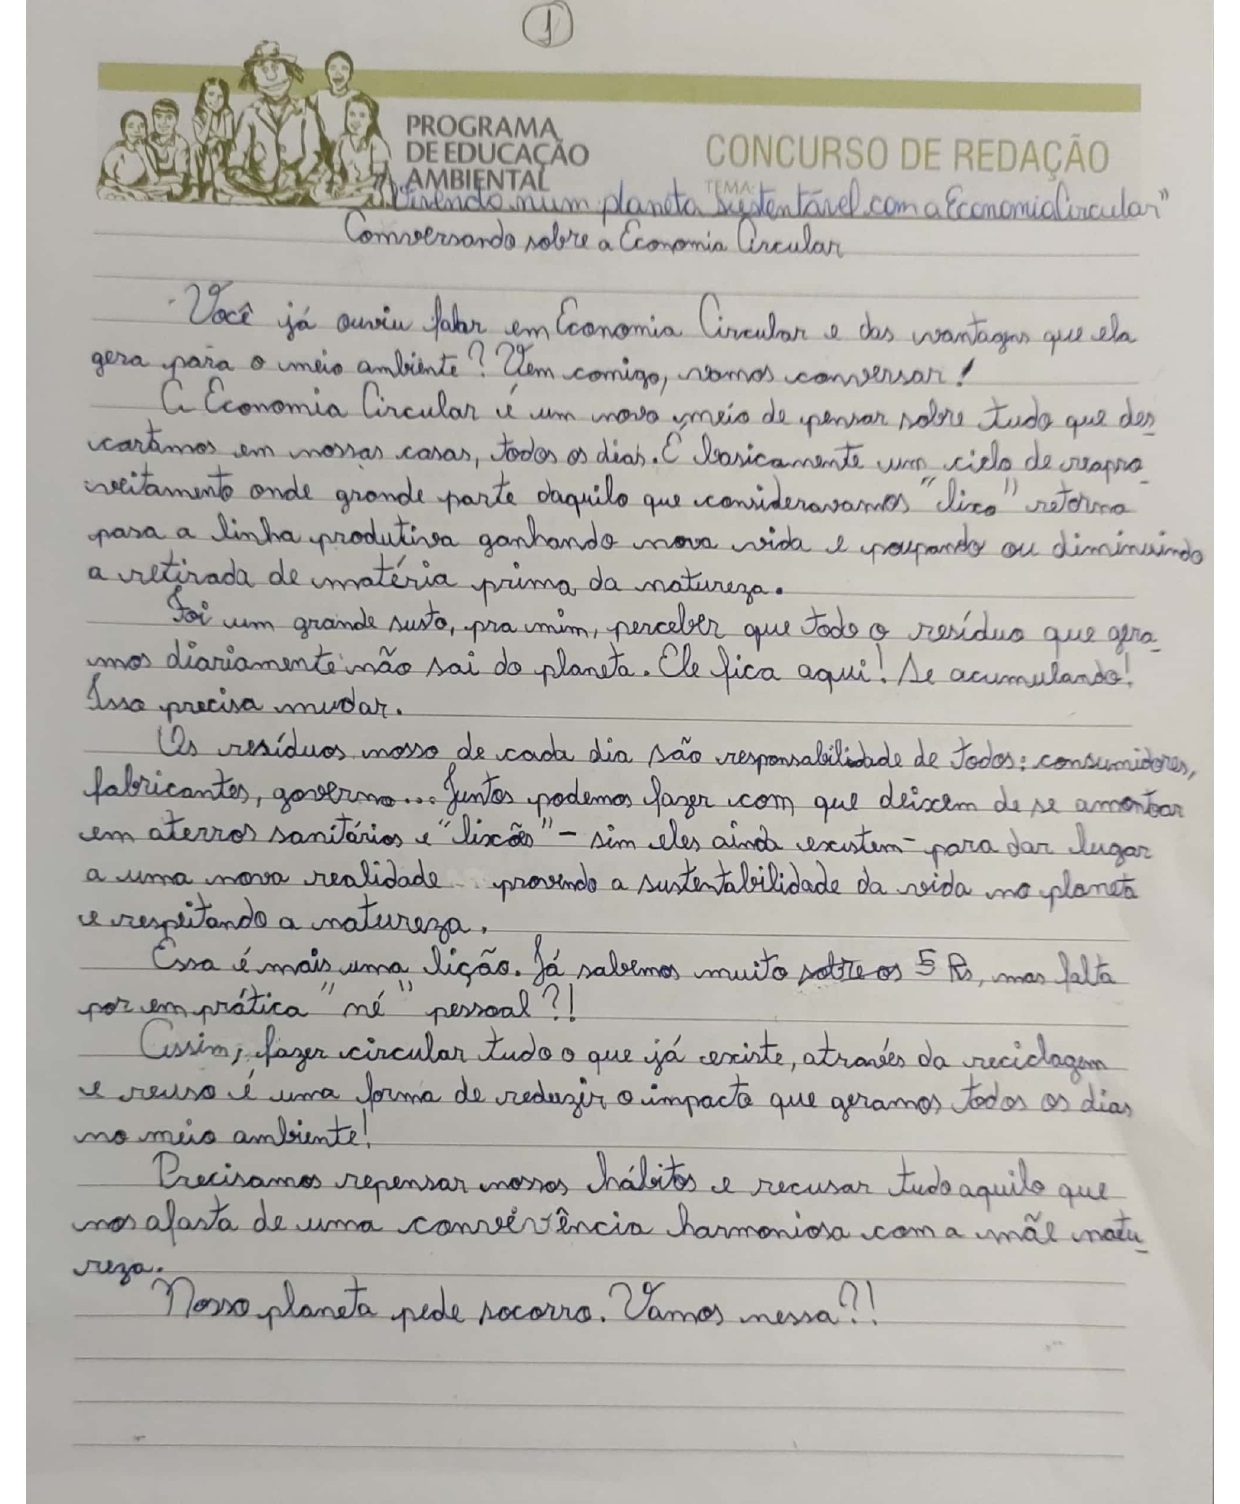 1
PROGRAMA
DE EDUCAÇÃO
AMBIENTAL
CONCURSO DE REDAÇÃO
TEMA:
"Vivendo num planeta sustentável com a Economia Circular"
Conversando sobre a Economia Circular
Você já ouviu falar em Economia Circular e das vantagens que ela
gera para o meio ambiente? Vem comigo, vamos conversar!
A Economia Circular é um novo meio de pensar sobre tudo que des
cartamos em nossas casas, todos os dias. É basicamente um ciclo de reapro
veitamento onde grande parte daquilo que consideravamos "lixo" retorna
para a linha produtiva ganhando nova vida e poupando ou diminuindo
a retirada de matéria prima da natureza.
Foi um grande susto, pra mim, perceber que todo o resíduo que gera
mos diariamente não sai do planeta. Ele fica aqui! Se acumulando!
Isso precisa mudar.
Os resíduos nosso de cada dia são responsabilidade de todos: consumidores,
fabricantes, governo... Juntos podemos fazer com que deixem de se amontoar
em aterros sanitários e "lixões" - sim eles ainda existem - para dar lugar
a uma nova realidade provendo a sustentabilidade da vida no planeta
e respeitando a natureza.
Essa é mais uma lição. Já sabemos muito sobre os 5 Rs, mas falta
por em prática "né" pessoal?!
Assim, fazer circular tudo o que já existe, através da reciclagem
e reuso é uma forma de reduzir o impacto que geramos todos os dias
no meio ambiente!
Precisamos repensar nossos hábitos e recusar tudo aquilo que
nos afasta de uma convivência harmoniosa com a mãe natu
reza.
Nosso planeta pede socorro. Vamos nessa?!